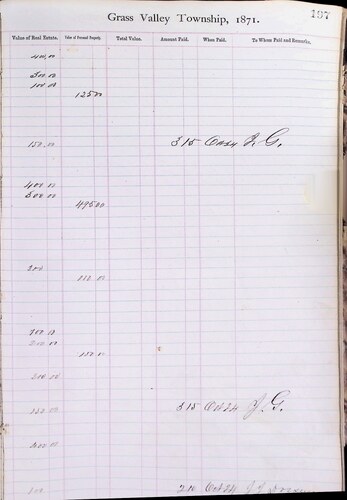 197
Grass Valley Township, 1871.
Value of Real Estate. Value of Personal Property. Total Value. Amount Paid. When Paid. To Whom Paid and Remarks.
400 00
300 00
100 00
125 00
150 00 3 15 Oct 24 J. G.
400 00
500 00
495 00
200
150 00
200 00
150 00 3 15 Oct 24 J. G.
400 00
2 10 Oct 24